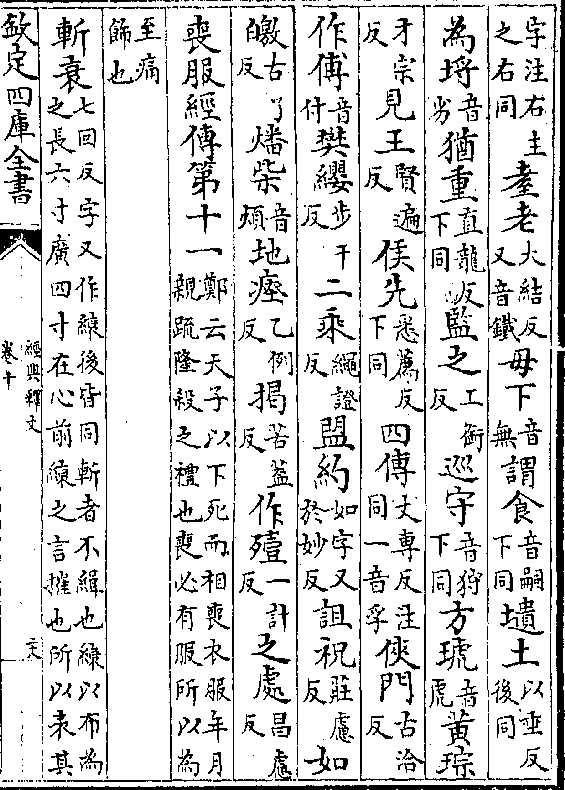 字注右主之右同耋老大結反又音鐵毋下音無謂食音嗣下同壝土以垂反後同
為埒音劣猶重直龍反下同監之工銜反巡守音狩下同方琥音虎黃琮
才宗反見王賢遍反侯先悉薦反下同四傳丈專反注同一音孚俠門古洽反
作傅音什樊纓步干反二乘繩證反盟約如字又於妙反詛祝莊慮反如
皦古了反燔柴音煩地瘞乙例反揭苦蓋反作殪一計反之處昌慮反
喪服經傳第十一鄭云天子以下死而相喪衣服年月親疏隆殺之禮也喪必有服所以為
至痛飾也
斬衰七回反字又作縗後皆同斬者不緝也縗以布為之長六寸廣四寸在心前縗之言摧也所以表其
欽定四庫全書
經典釋文
卷十